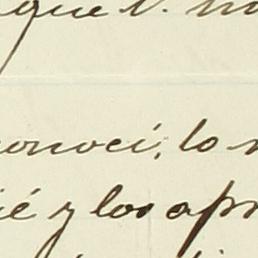 que V. no
conocí, lo
ié y los apr